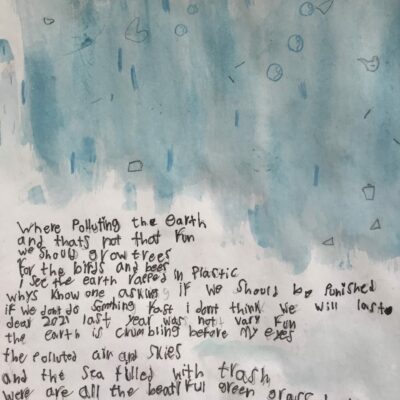 Where Polluting the earth
and thats not that fun
we should grow trees
for the birds and bees
I see the earth rapped in Plastic
whys know one asking if we should be Punished
if we dont do somthing fast I dont think we will last
dear 2021 last year was not vary fun
the earth is crumbling before my eyes
the polluted air and skies
and the sea filled with trash
were are all the beatiful green grass